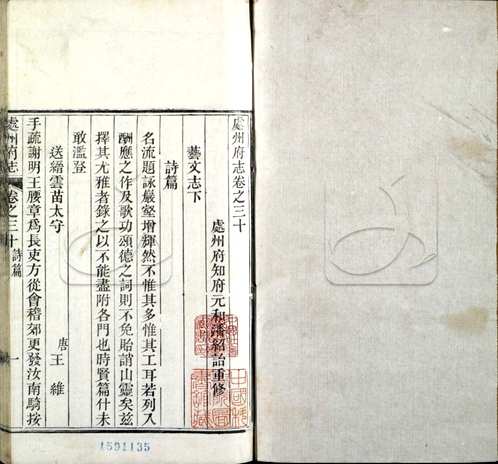 處州府志卷之三十
處州府知府元和潘紹詒重修
藝文志下
詩篇
名流題詠巖壑增輝然不惟其多惟其工耳若列入
酬應之作及歌功頌德之詞則不免貽誚山靈矣茲
擇其尤雅者錄之以不能盡附各門也時賢篇什未
敢濫登
送縉雲苗太守
唐王維
手疏謝明王腰章爲長吏方從會稽郊更發汝南騎按
處州府志
卷之三十
詩篇
一
1591135